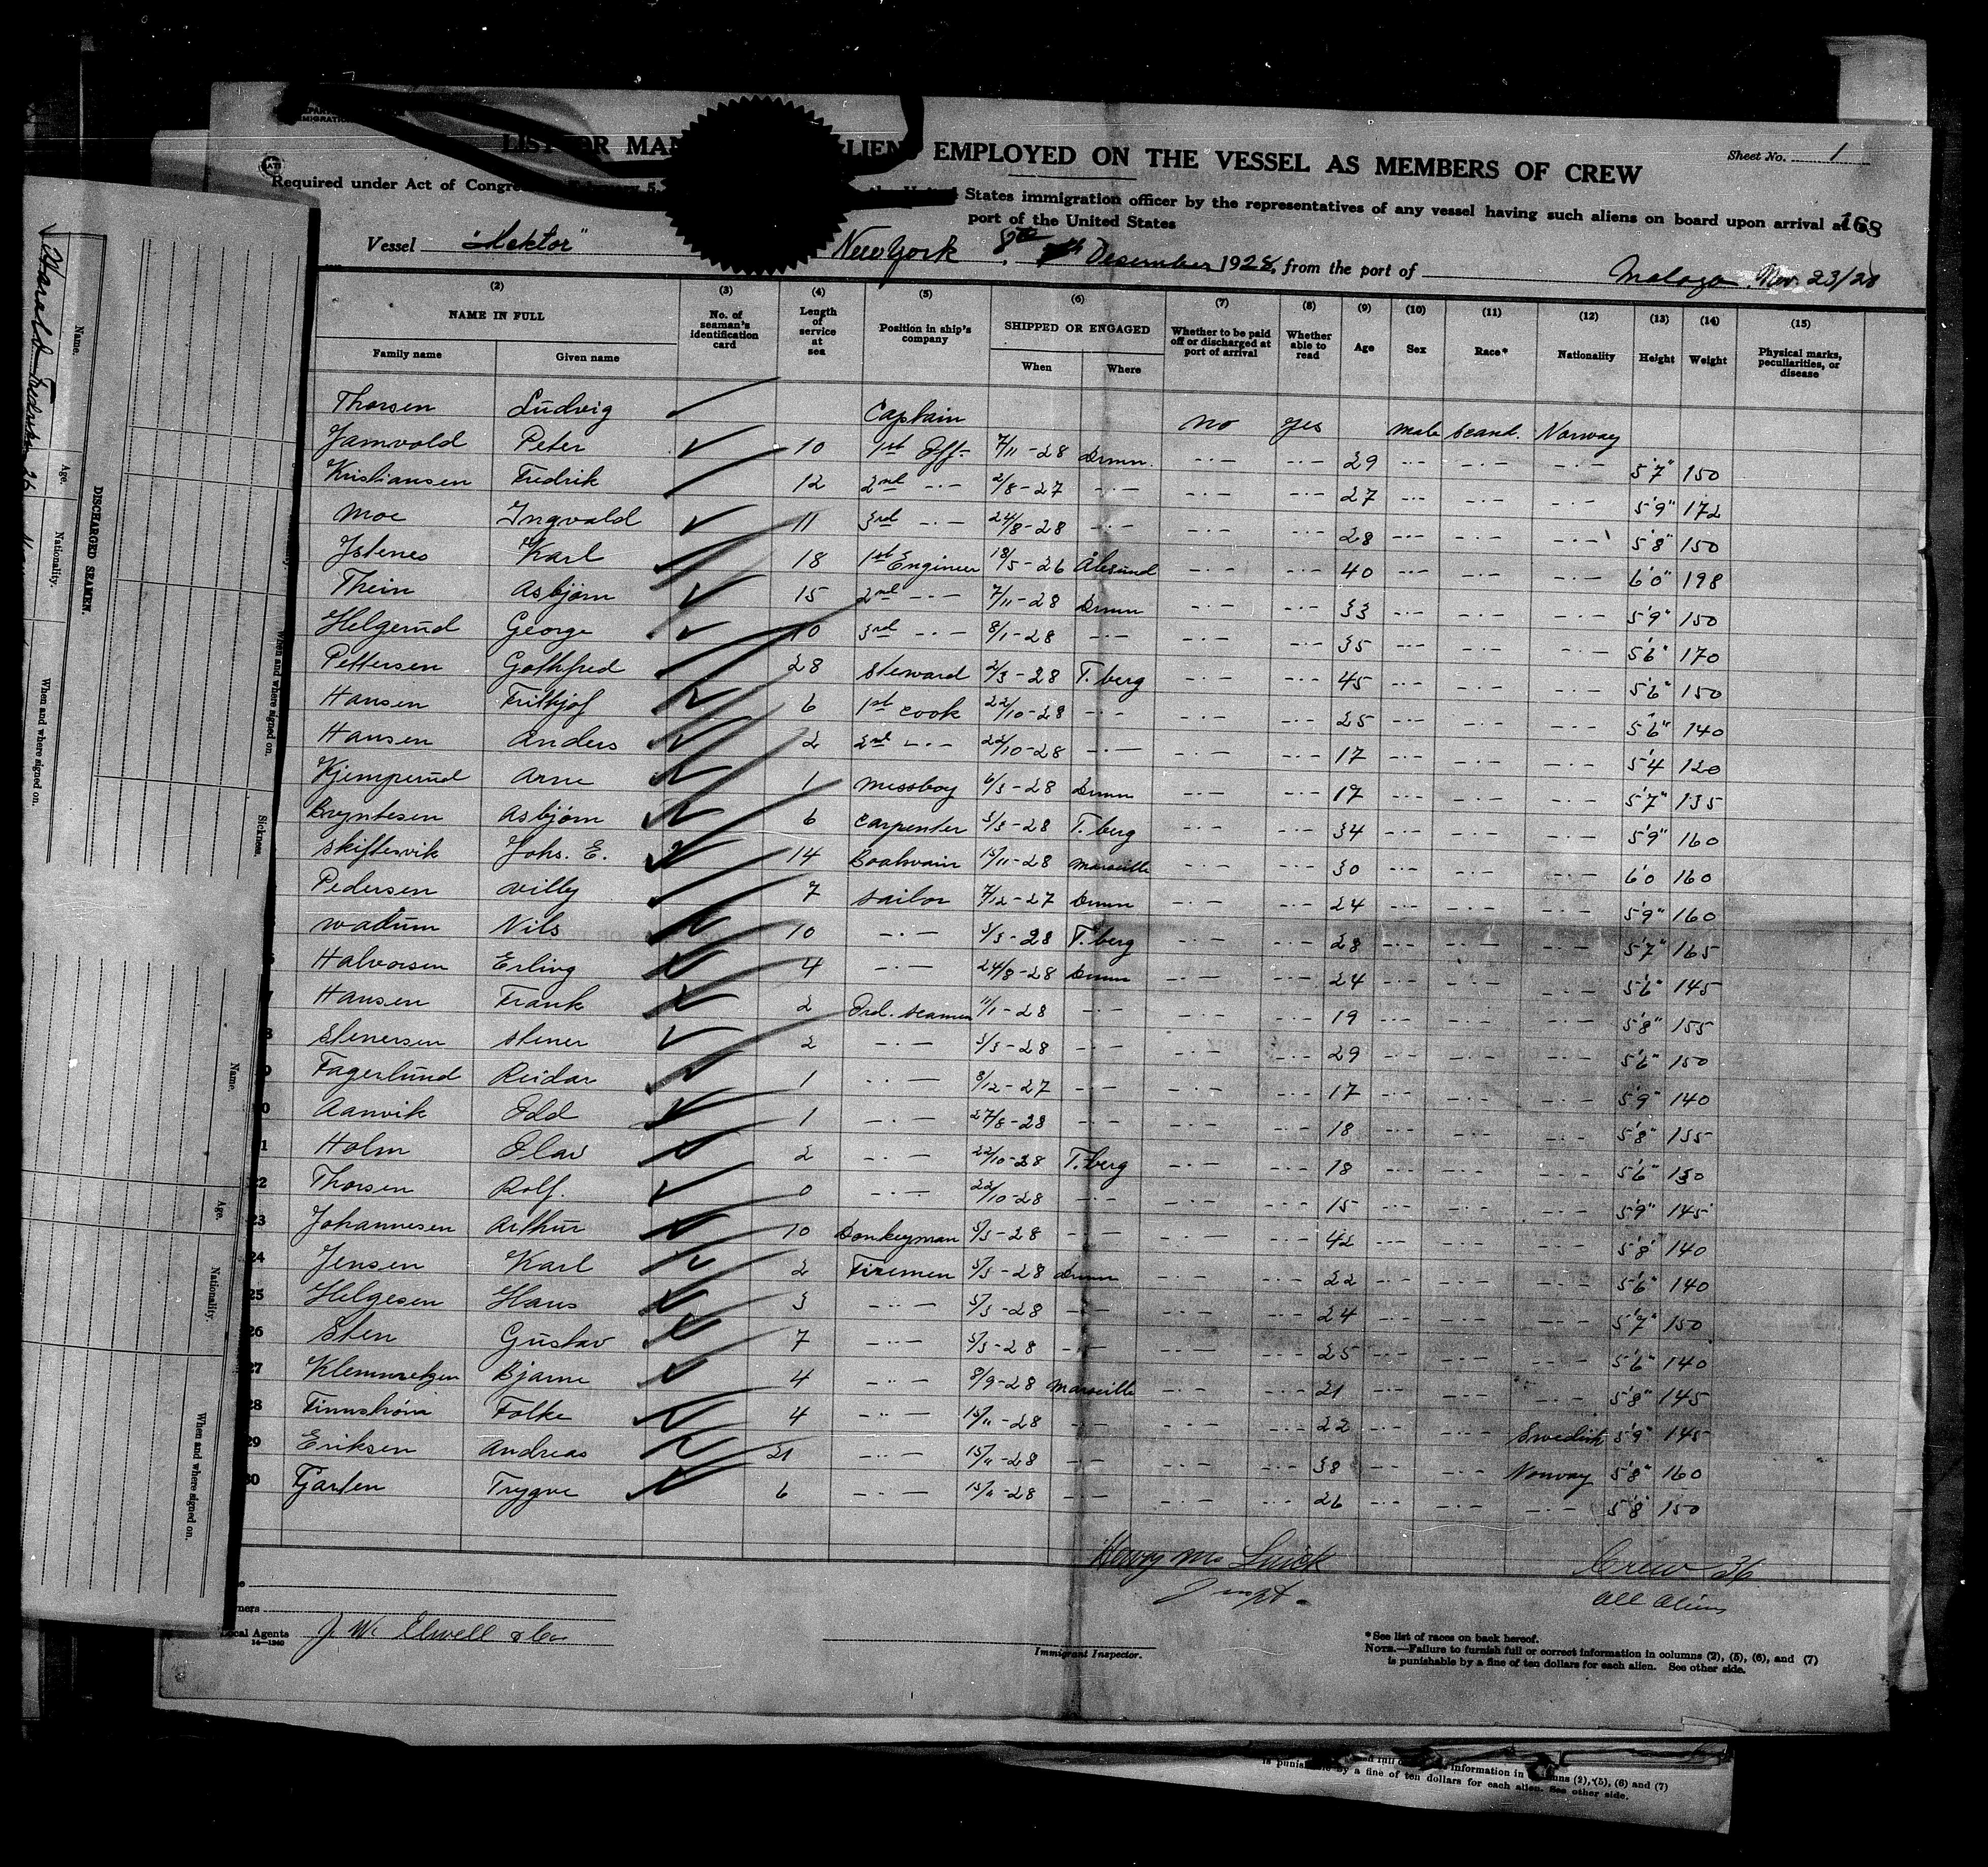 LIST OR MAN LIENS EMPLOYED ON THE VESSEL AS MEMBERS OF CREW
Sheet No. 1
Required under Act of Congress States immigration officer by the representatives of any vessel having such aliens on board upon arrival at a
port of the United States
168
Vessel "Hektor" New York 8th December 1928, from the port of Malaga Nov. 23/28
(2) (3) (4) (5) (6) (7) (8) (9) (10) (11) (12) (13) (14) (15)
NAME IN FULL No. of seaman's identification card Length of service at sea Position in ship's company SHIPPED OR ENGAGED Whether to be paid off or discharged at port of arrival Whether able to read Age Sex Race* Nationality Height Weight Physical marks, peculiarities, or disease
Family name Given name When Where
Thorsen Ludvig Captain no yes male Scand. Norway
Jamvold Peter 10 1st Off. 7/11-28 Drmn. -.- -.- 29 -.- -.- -.- 5'7" 150
Kristiansen Fredrik 12 2nd -.- 2/8-27 -.- -.- -.- 27 -.- -.- -.- 5'9" 172
Moe Ingvald 11 3rd -.- 24/8-28 -.- -.- -.- 28 -.- -.- -.- 5'8" 150
Istenes Karl 18 1st Engineer 18/5-26 Ålesund -.- -.- 40 -.- -.- -.- 6'0" 198
Thein Asbjørn 15 2nd -.- 7/11-28 Drmn -.- -.- 33 -.- -.- -.- 5'9" 150
Helgerud George 10 3rd -.- 8/1-28 -.- -.- -.- 35 -.- -.- -.- 5'6" 170
Pettersen Gothfred 28 Steward 2/3-28 T.berg -.- -.- 45 -.- -.- -.- 5'6" 150
Hansen Frithjof 6 1st Cook 22/10-28 -.- -.- -.- 25 -.- -.- -.- 5'6" 140
Hansen Anders 2 2nd -.- 22/10-28 -.- -.- -.- 17 -.- -.- -.- 5'4 120
Kjemperud Arne 1 Messboy 6/3-28 Drmn -.- -.- 17 -.- -.- -.- 5'7" 135
Bryntesen Asbjørn 6 Carpenter 5/3-28 T.berg -.- -.- 34 -.- -.- -.- 5'9" 160
Skiftesvik Johs. E. 14 Boatswain 15/11-28 Marseille -.- -.- 30 -.- -.- -.- 6'0 160
Pedersen Willy 7 Sailor 7/12-27 Drmn -.- -.- 24 -.- -.- -.- 5'9" 160
Wadum Nils 10 -.- 5/3-28 T.berg -.- -.- 28 -.- -.- -.- 5'7" 165
Halvorsen Erling 4 -.- 24/8-28 Drmn -.- -.- 24 -.- -.- -.- 5'6" 145
Hansen Frank 2 Ord. Seamen 11/1-28 -.- -.- -.- 19 -.- -.- -.- 5'8" 155
Stenersen Stener 2 -.- 5/3-28 -.- -.- -.- 29 -.- -.- -.- 5'6" 150
Fagerlund Reidar 1 -.- 8/12-27 -.- -.- -.- 17 -.- -.- -.- 5'9" 140
Aanvik Odd 1 -.- 27/8-28 -.- -.- -.- 18 -.- -.- -.- 5'8" 155
Holm Olav 2 -.- 22/10-28 T.berg -.- -.- 18 -.- -.- -.- 5'6" 130
22 Thorsen Rolf. 0 -.- 22/10-28 -.- -.- -.- 15 -.- -.- -.- 5'9" 145
23 Johannesen Arthur 10 Donkeyman 5/3-28 -.- -.- -.- 42 -.- -.- -.- 5'8" 140
24 Jensen Karl 2 Firemen 5/3-28 Drmn -.- -.- 22 -.- -.- -.- 5'6" 140
25 Helgesen Hans 3 -.- 5/3-28 -.- -.- -.- 24 -.- -.- -.- 5'7" 150
26 Sten Gustav 7 -.- 5/3-28 -.- -.- -.- 25 -.- -.- -.- 5'6" 140
27 Bjarne 4 -.- 8/9-28 Marseille -.- -.- 21 -.- -.- -.- 5'8" 145
28 Finnstrøm Folke 4 -.- 15/11-28 -.- -.- -.- 22 -.- -.- Swedish 5'9" 145
29 Eriksen Andreas 21 -.- 15/11-28 -.- -.- -.- 38 -.- -.- Norway 5'8" 160
30 Fjarten Trygve 6 -.- 15/11-28 -.- -.- -.- 26 -.- -.- -.- 5'8" 150
Inspt.
Crew 36
All Aliens
Local Agents J. W. Elwell & Co
14—1240
Immigrant Inspector.
*See list of races on back hereof.
NOTE.—Failure to furnish full or correct information in columns (2), (5), (6), and (7)
is punishable by a fine of ten dollars for each alien. See other side.
information in columns (2), (5), (6) and (7)
is punishable by a fine of ten dollars for each alien. See other side.
DISCHARGED SEAMEN.
Name. Age. Nationality. When and where signed on.
Harald Fredriksen 26
When and where signed on. Sickness.
Name. Age. Nationality. When and where signed on.